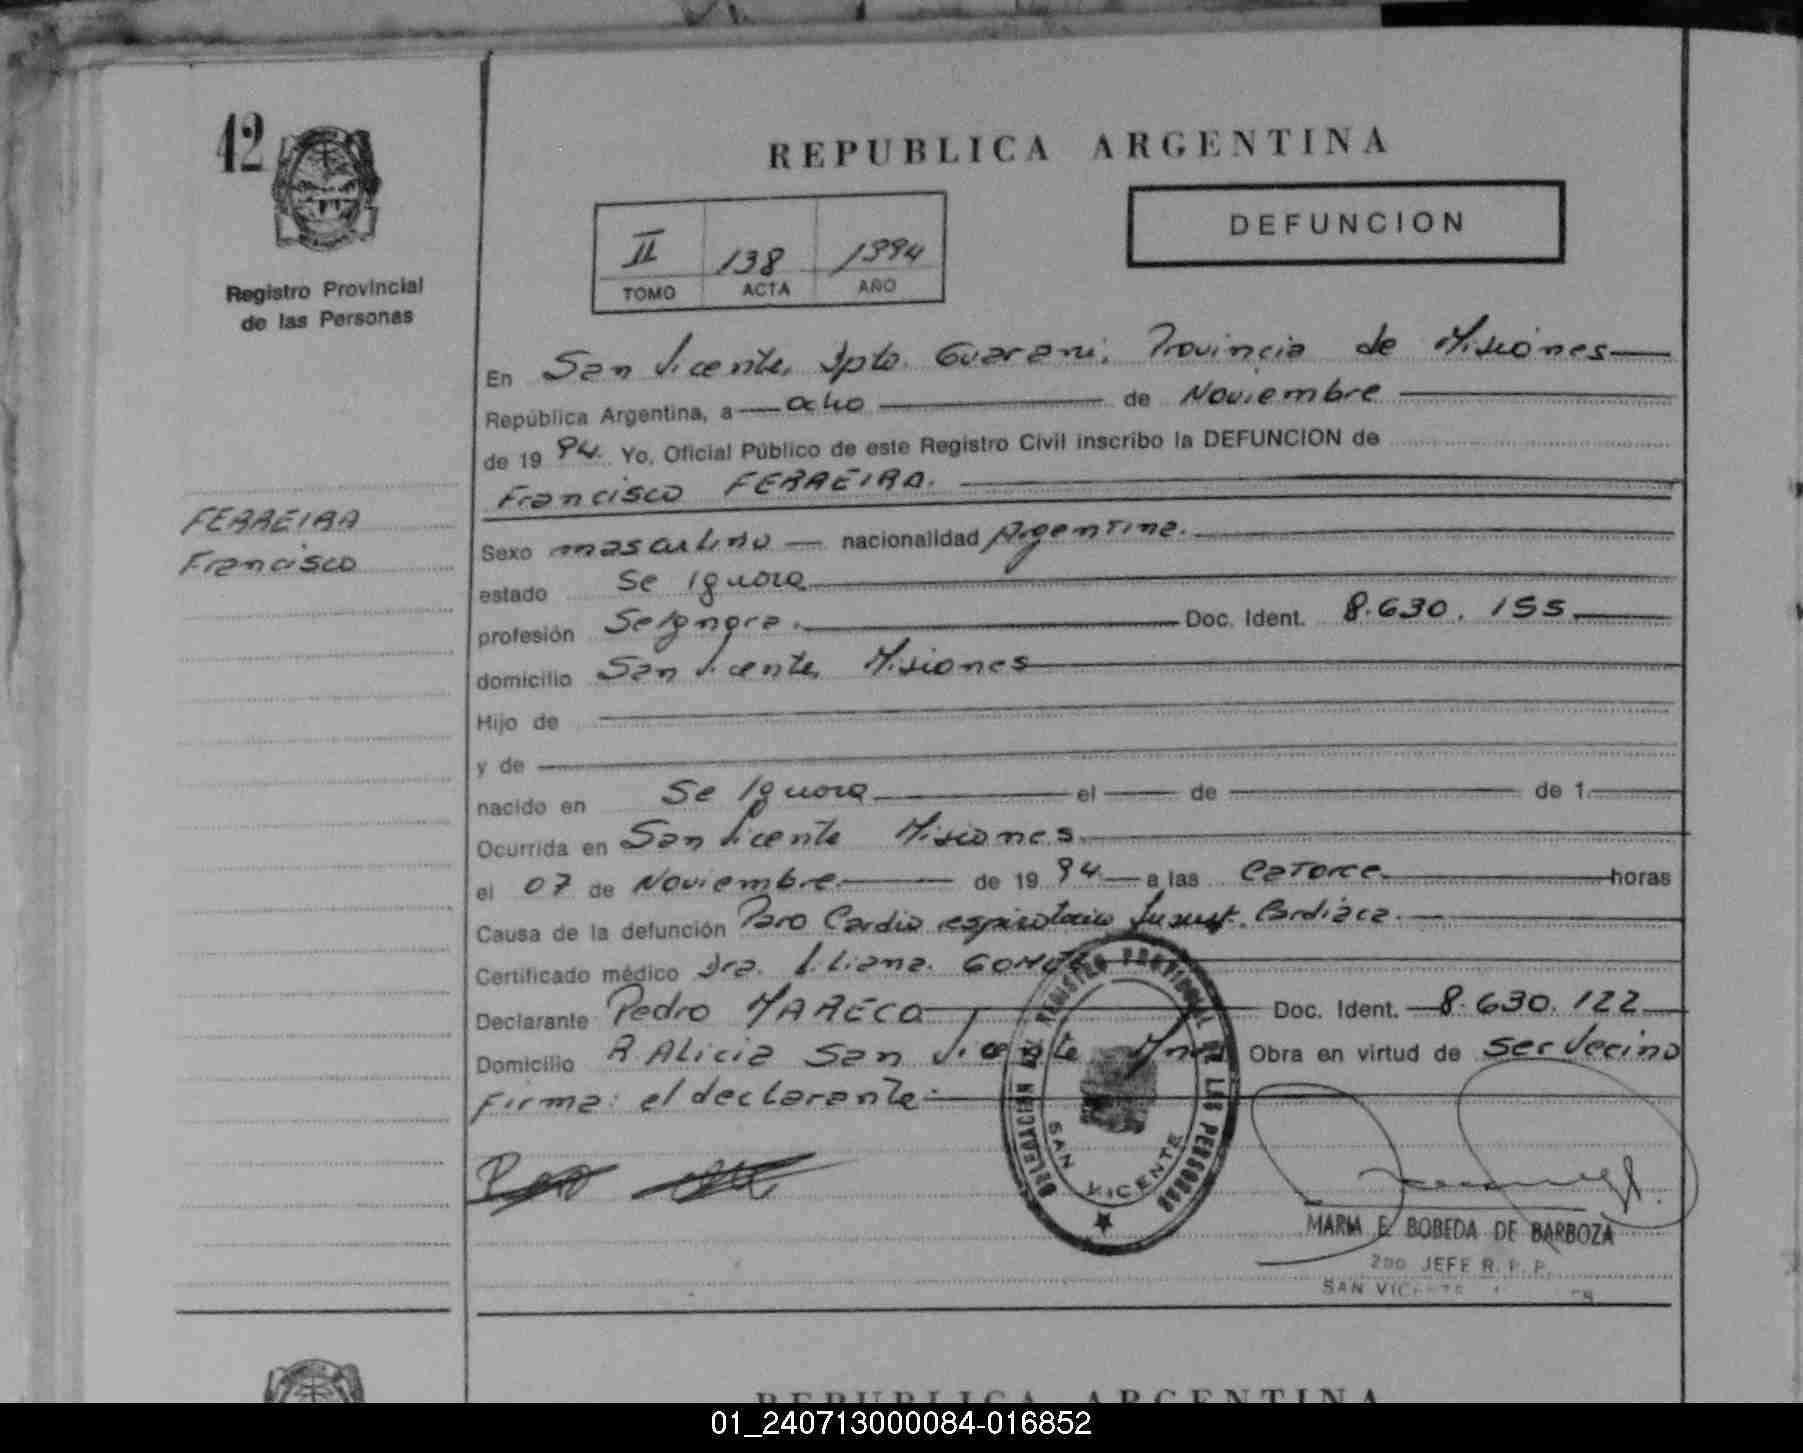 42
REPUBLICA ARGENTINA
II 138 1994
TOMO ACTA AÑO
DEFUNCION
Registro Provincial
de las Personas
En San Vicente, Dpto. Guarani, Provincia de Misiones
República Argentina, a ocho de Noviembre
de 19 94. Yo, Oficial Público de este Registro Civil inscribo la DEFUNCION de
Francisco FERREIRA.
FERREIRA
Francisco
Sexo masculino nacionalidad Argentina.
estado Se Ignora
profesión Se Ignora. Doc. Ident. 8.630.155
domicilio San Vicente, Misiones
Hijo de
y de
nacido en Se Ignora el de de 1
Ocurrida en San Vicente Misiones
el 07 de Noviembre de 19 94 a las Catorce horas
Causa de la defunción Paro Cardio espiratorio Cardiaca.
Certificado médico Dra. Liliana. GOMEZ
Declarante Pedro MARECO Doc. Ident. 8.630.122
Domicilio A. Alicia San Vicente Mnes Obra en virtud de ser Vecino
Firma: el declarante.
DELEGACION DEL REGISTRO PROVINCIAL DE LAS PERSONAS
SAN VICENTE
MARIA E. BOBEDA DE BARBOZA
2DO JEFE R. P. P.
SAN VICENTE
REPUBLICA ARGENTINA
01_240713000084-016852